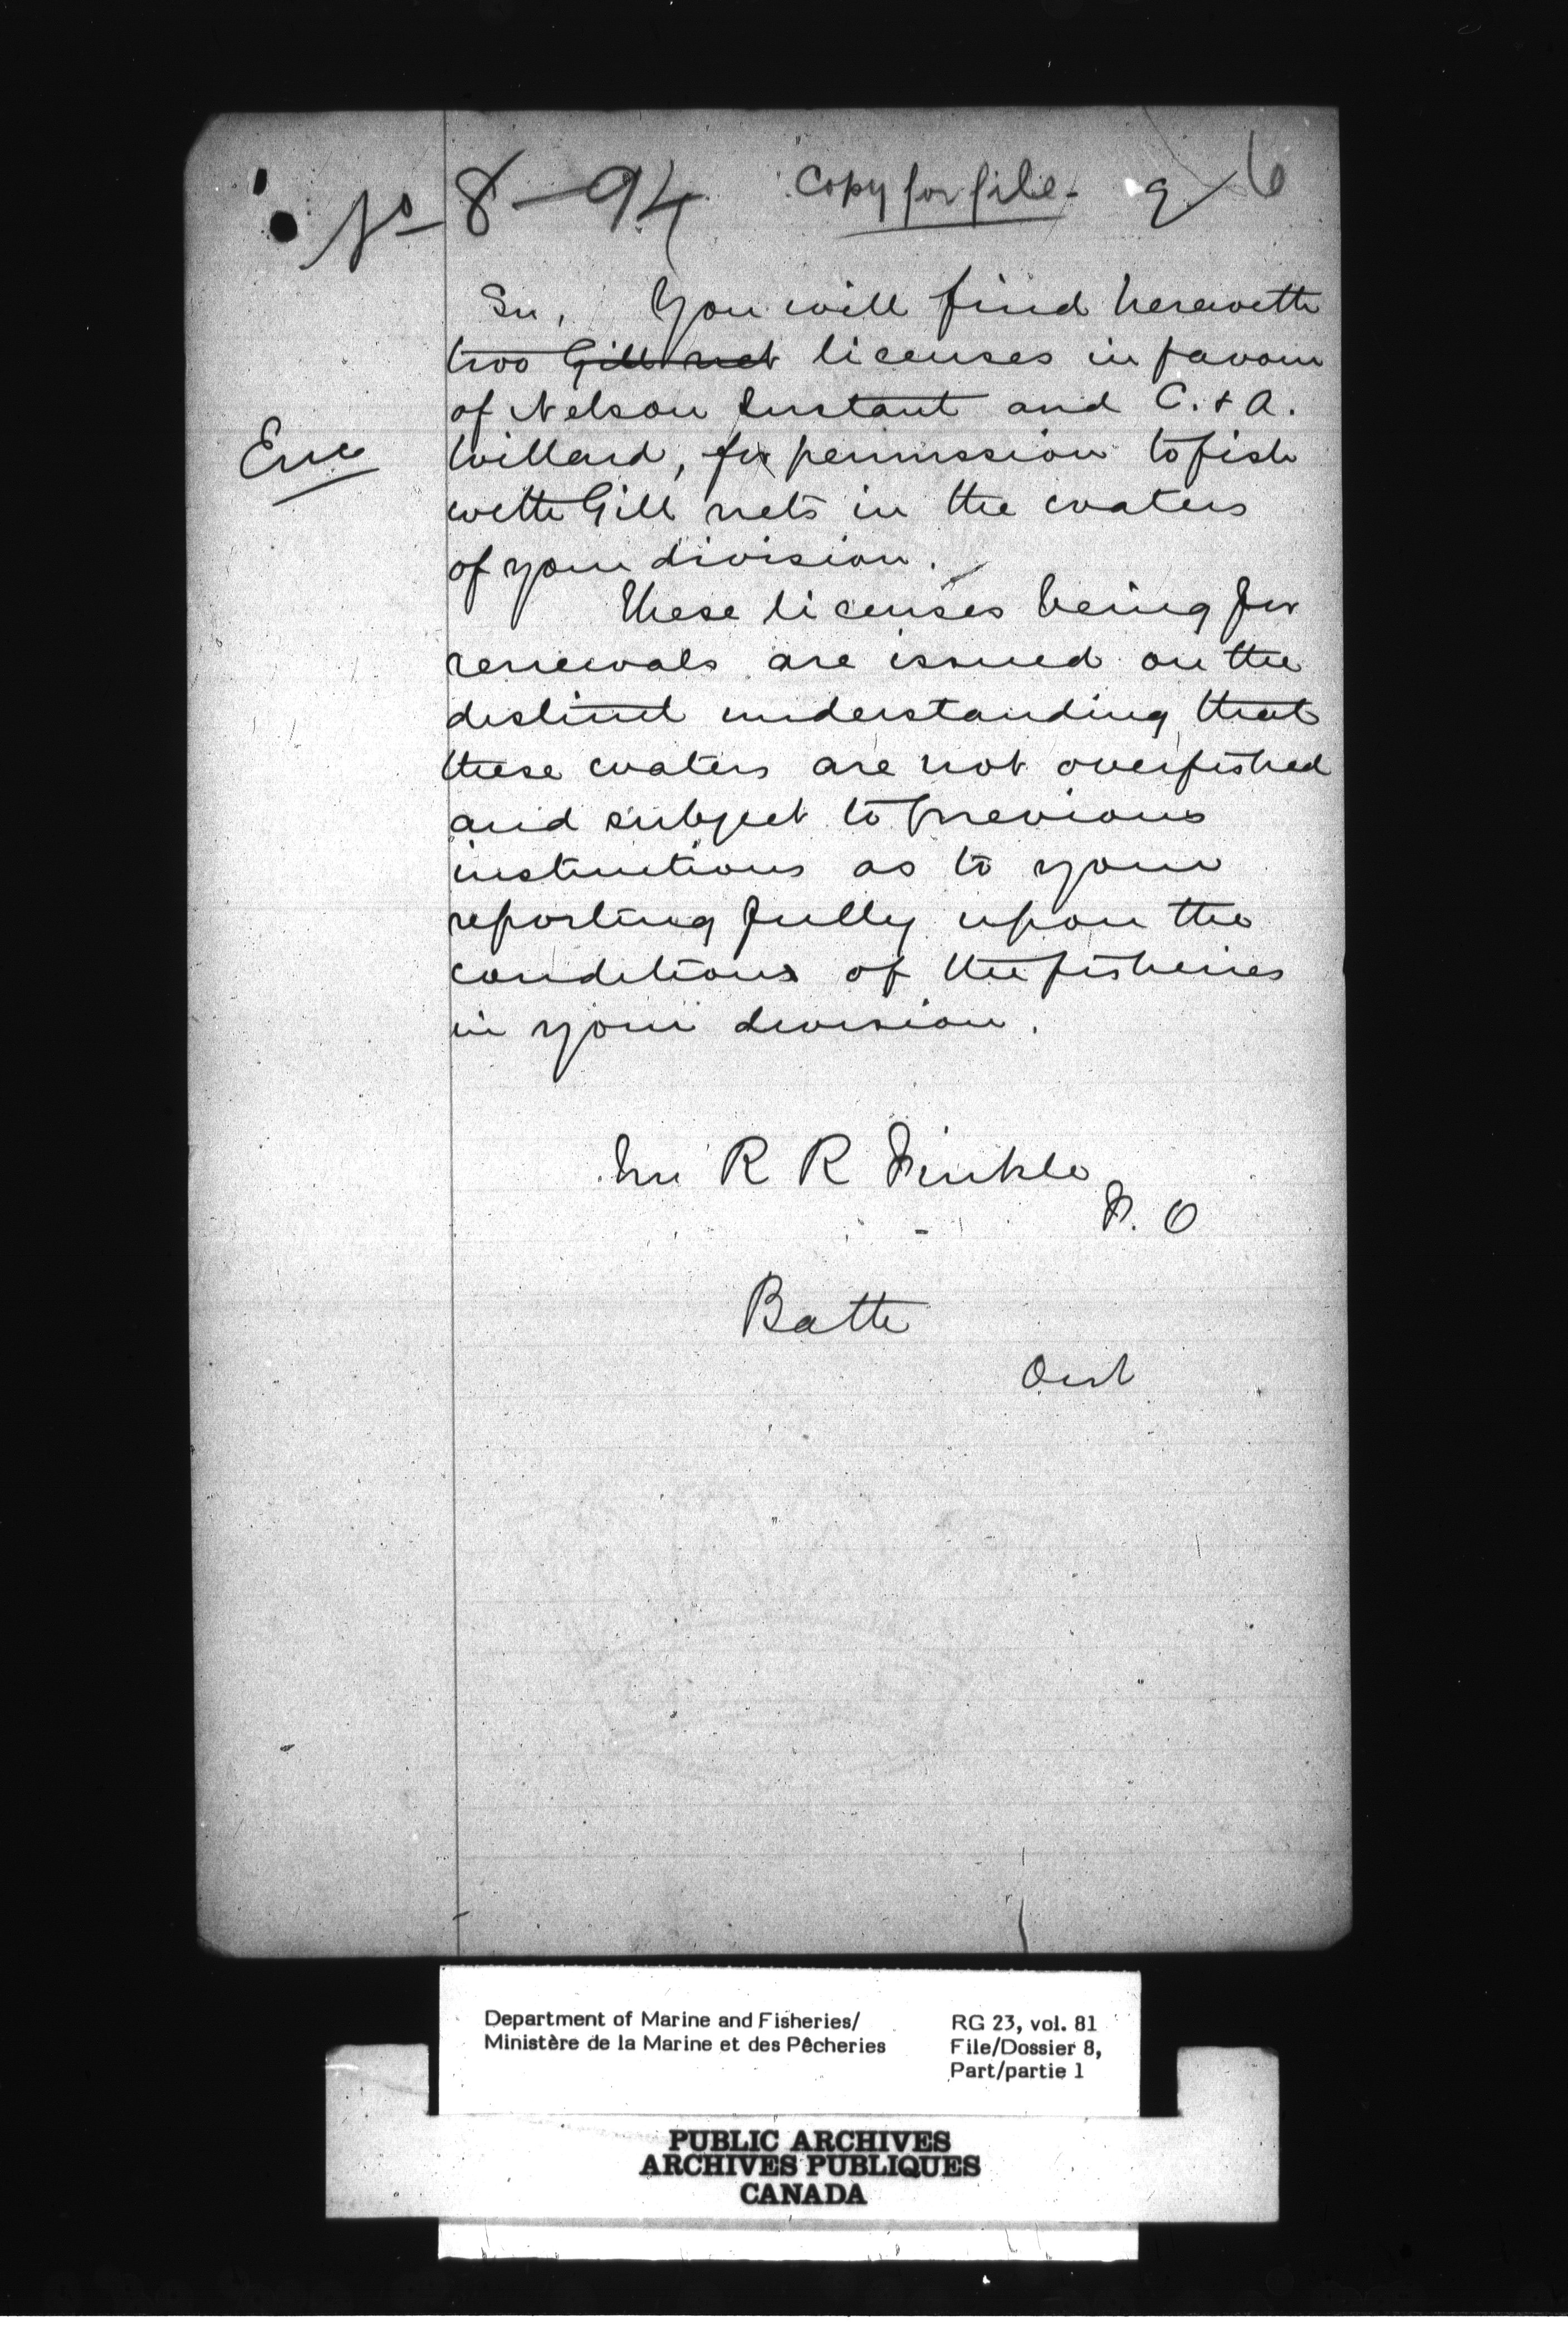 No 8-94 Copy for file - 9 6
Sir, You will find herewith
two ~~Gill net~~ licenses in favour
of Nelson and C. & A.
Willard, for permission to fish
Enc
with Gill nets in the waters
of your division.
These licenses being for
renewals are issued on the
distinct understanding that
these waters are not overfished
and subject to previous
instructions as to your
reporting fully upon the
conditions of the fisheries
in your division.
Mr R R Finkle
F. O
Bath
Ont
Department of Marine and Fisheries/
Ministère de la Marine et des Pêcheries
RG 23, vol. 81
File/Dossier 8,
Part/partie 1
PUBLIC ARCHIVES
ARCHIVES PUBLIQUES
CANADA